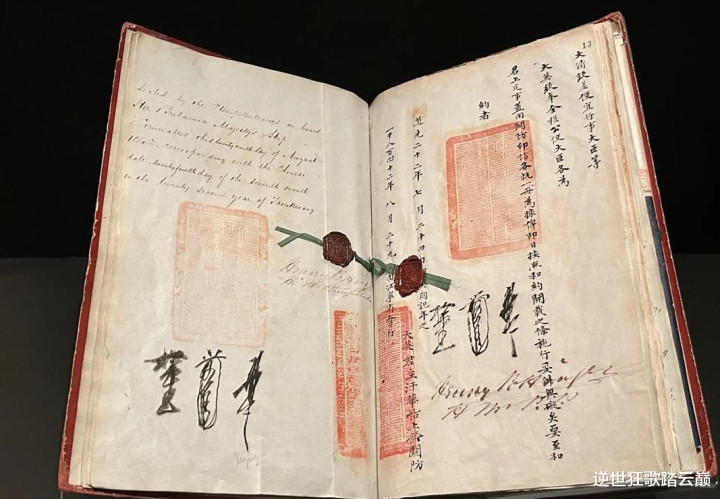 Sealed by the Plenipotentiaries on board
Her Britannic Majesty's Ship
Cornwallis this twenty ninth day of August
1842, corresponding with the Chinese
date, twenty fourth day of the seventh month
in the twenty second year of Taoukwang
Henry Pottinger
13
大清欽差便宜行事大臣等
大英欽奉全權公使大臣各為
君上定事蓋用關防印信各執一冊為據俾即日按照和約開載之條施行妥辦無礙矣要至和
約者
道光二十二年七月二十四日即英國記年之
一千八百四十二年八月二十九日由江寧省會行
大英君主汗華船上鈐關防
Henry Pottinger
逆世狂歌踏云巅